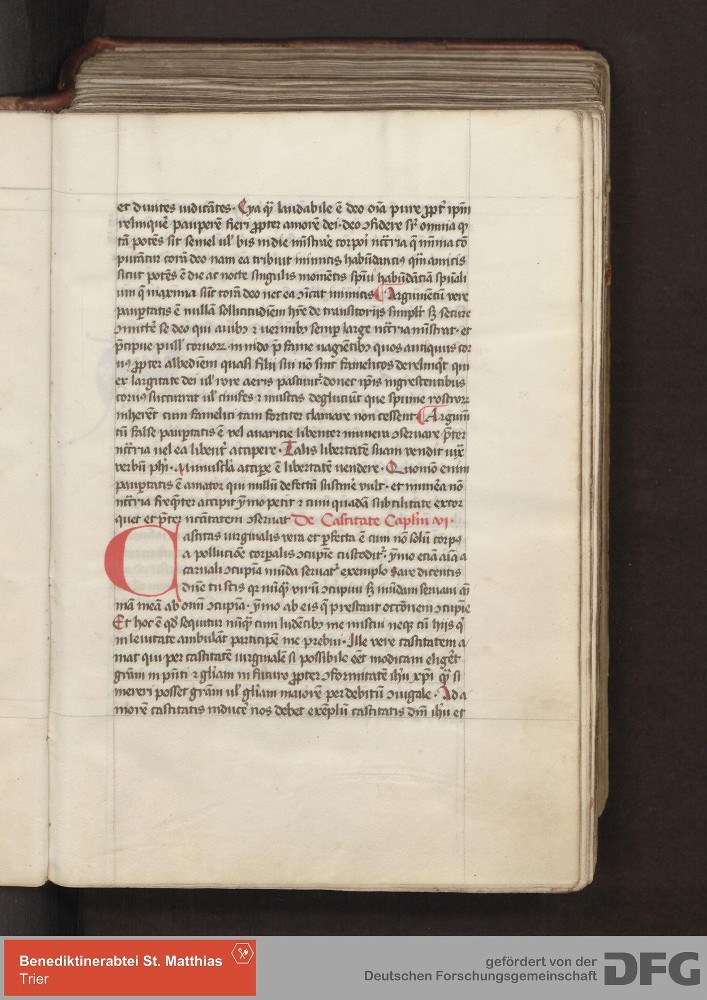 et diuites iudicātes. Eya qƺ laudabile ē deo oīa pure ꝓpt̄ ip̄m
relinquē pauperē fieri ꝓpter amorē dei. deo ꝯfidere sup omnia qͥ
tā potēs sit semel ul' bis in die mīstrare corpori nc̄cria q̄ mīma cō
putātur corā deo nam ea tribuit inimicis habūdantius qͣm amicis
sicut potēs ē die ac nocte singulis momētis spūi habūdātiā spūali
um q̄ maxima sūt corā deo nec ea ꝯicat inimicis Argumētū vere
paup̄tatis ē nullā sollicitudīem hr̄e de transitorijs simplr̄ sƺ secure
ꝯmittē se deo qui auibƺ ⁊ vermibƺ semp̄ large nc̄cria mīstrat. et
p̄cipue pull' coruoꝝ in nido p̄ fame vagiētibƺ quos antiquus cor
uus ꝓpter albedīem quasi filij sui nō sint famelicos derelinq̄t qui
ex largitate dei ul' rore aeris pascūtr̄ donec ip̄is nigrescentibus
coruus succurrat ul' cinifes ⁊ muscas deglutiūt que spume rostroꝝ
inherēt cum famelici tam fortiter clamare non cessent Argum̄
tū false paup̄tatis ē vel auaricie libenter munera ꝯseruare p̄ter
nc̄cria uel ea libent̄ accipere. Talis libertatē suam vendit iuxͣ
verbū phī. Munuscl'a accipe ē libertatē vendere. Quomō enim
paup̄tatis ē amator qui nullū defectū sustinē vult. et munera nō
nc̄cria freq̄nter accipit ymo petit ⁊ cum quadā subtilitate extor
quet et p̄ter nc̄citatem ꝯseruat De Castitate Caplm̄ vi.
Castitas virginalis vera et p̄fecta ē cum nō solū corpus
a pollucōne corpalis ꝯcupīe custoditr̄. ymo etiā aīa a
carnali ꝯcupīa mūda seruatr̄ exemplo Sare dicentis
Dn̄e tu scis qͣ nūqͣ virū ꝯcupiui sƺ mūdam seruaui aīā
mā meā ab omī ꝯcupīa. ymo ab eis q̄ prestant occōnem ꝯcupīe
Et hoc ē qd̄ sequitur nūqͣ cum ludētibƺ me miscui neqƺ cū hijs qͥ
in leuitate ambulāt participē me prebui. Ille vere castitatem a
mat qui per castitatē virginalē si possibile eēt modicam eliget
grām in pn̄ti ⁊ gl'iam in futuro ꝓpter ꝯformitatē ihū xp̄i qͣ si
mereri posset grām ul' gl'iam maiorē per debitū ꝯiugale. Ad a
morē castitatis inducē nos debet exēplū castitatis dn̄i ihū et
Benediktinerabtei St. Matthias
Trier
gefördert von der
Deutschen Forschungsgemeinschaft
DFG